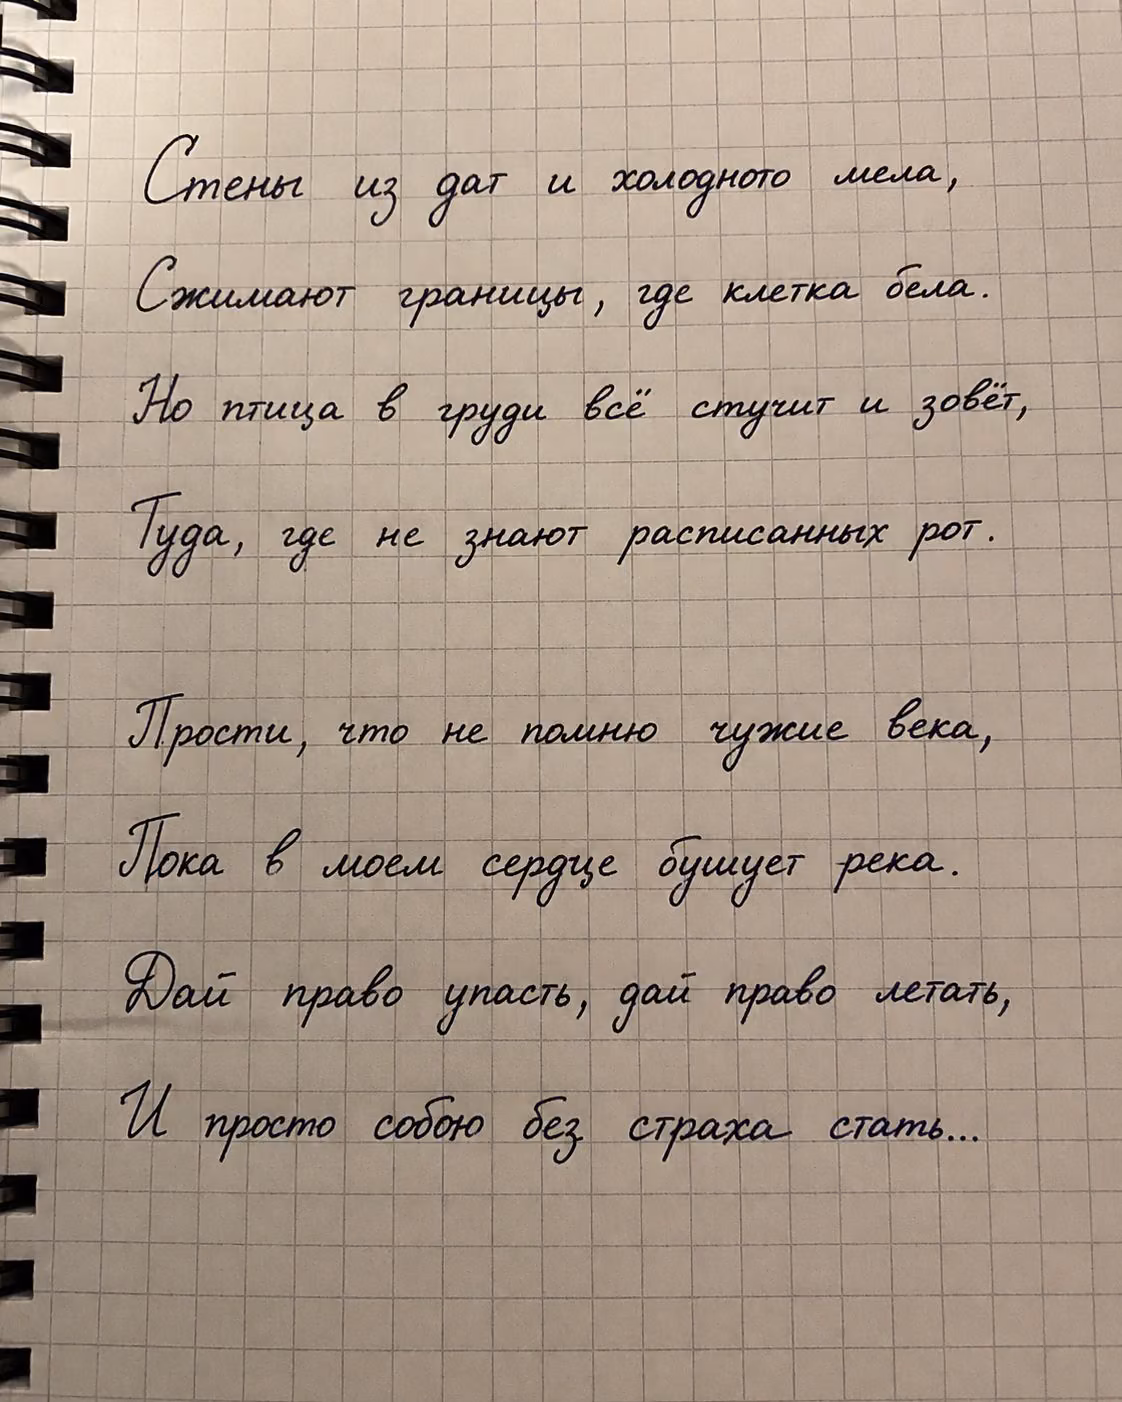 Стены из дат и холодного мела,
Сжимают границы, где клетка бела.
Но птица в груди всё стучит и зовёт,
Туда, где не знают расписанных рот.
Прости, что не помню чужие века,
Пока в моем сердце бушует река.
Дай право упасть, дай право летать,
И просто собою без страха стать...